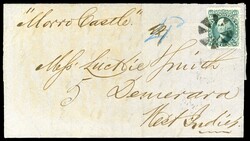 "Morro Castle"
Messrs Luckie Smith
5 Demerara
West Indies